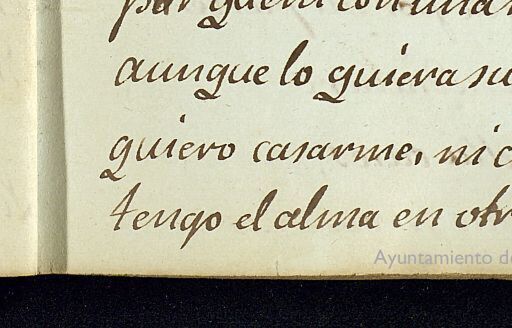 aunque lo quiera su
quiero casarme, ni c
tengo el alma en otr
Ayuntamiento d